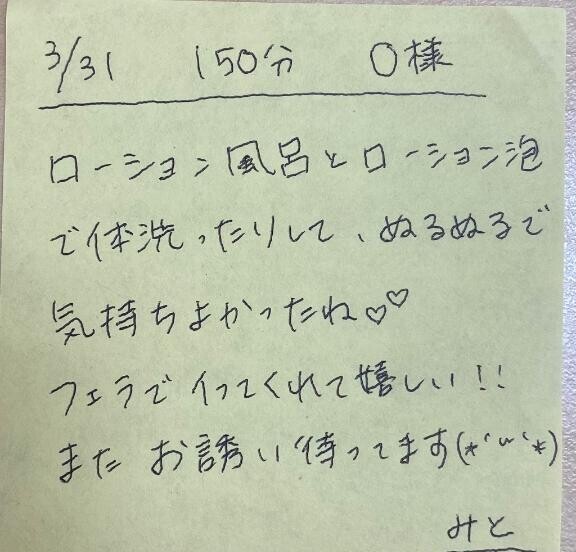 3/31 150分 O様
ローション風呂とローション泡
で体洗ったりして、ぬるぬるで
気持ちよかったね♡♡
フェラでイってくれて嬉しい!!
またお誘い待ってます(*´ω`*)
みと